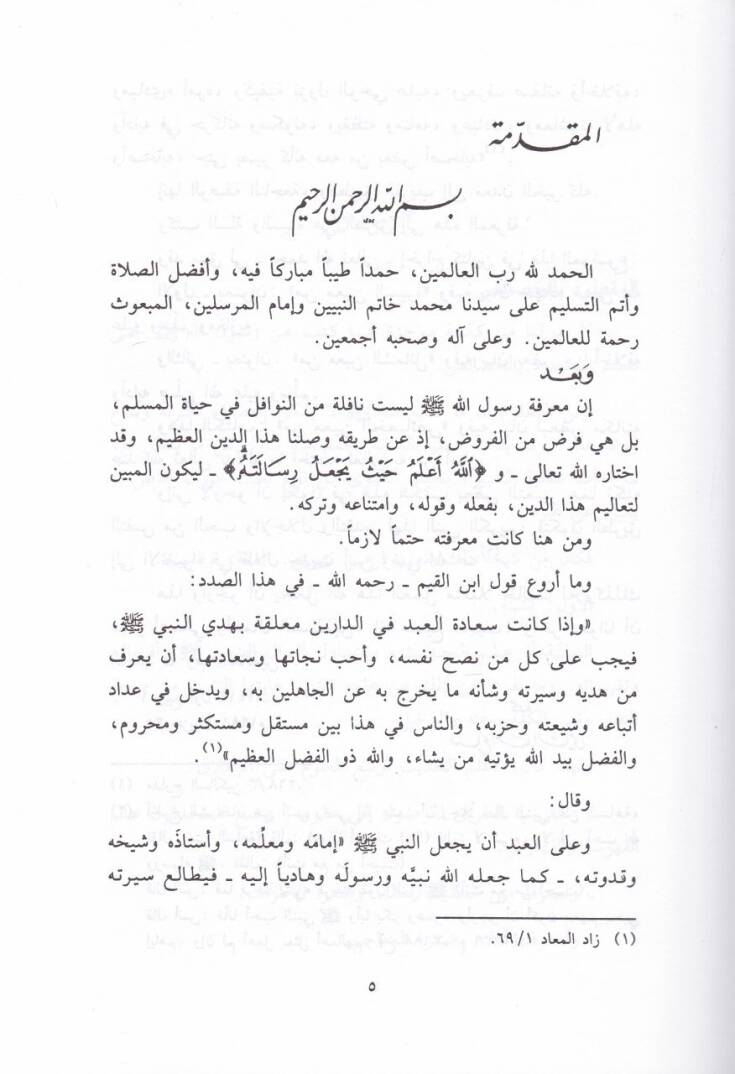 المقدّمة
بسم الله الرحمن الرحيم
الحمد لله رب العالمين، حمداً طيباً مباركاً فيه، وأفضل الصلاة
وأتم التسليم على سيدنا محمد خاتم النبيين وإمام المرسلين، المبعوث
رحمة للعالمين. وعلى آله وصحبه أجمعين.
وَبَعَـْد
إن معرفة رسول الله ﷺ ليست نافلة من النوافل في حياة المسلم،
بل هي فرض من الفروض، إذ عن طريقه وصلنا هذا الدين العظيم، وقد
اختاره الله تعالى ـ و ﴿ٱللَّهُ أَعْلَمُ حَيْثُ يَجْعَلُ رِسَالَتَهُ﴾ ـ ليكون المبين
لتعاليم هذا الدين، بفعله وقوله، وامتناعه وتركه.
ومن هنا كانت معرفته حتماً لازماً.
وما أروع قول ابن القيم ـ رحمه الله ـ في هذا الصدد:
«وإذا كانت سعادة العبد في الدارين معلقة بهدي النبي ﷺ،
فيجب على كل من نصح نفسه، وأحب نجاتها وسعادتها، أن يعرف
من هديه وسيرته وشأنه ما يخرج به عن الجاهلين به، ويدخل في عداد
أتباعه وشيعته وحزبه، والناس في هذا بين مستقل ومستكثر ومحروم،
والفضل بيد الله يؤتيه من يشاء، والله ذو الفضل العظيم»(١).
وقال:
وعلى العبد أن يجعل النبي ﷺ «إمامَه ومعلّمه، وأستاذَه وشيخه
وقدوته، ـ كما جعله الله نبيَّه ورسولَه وهادياً إليه ـ فيطالع سيرته
(١) زاد المعاد ١/ ٦٩.
٥